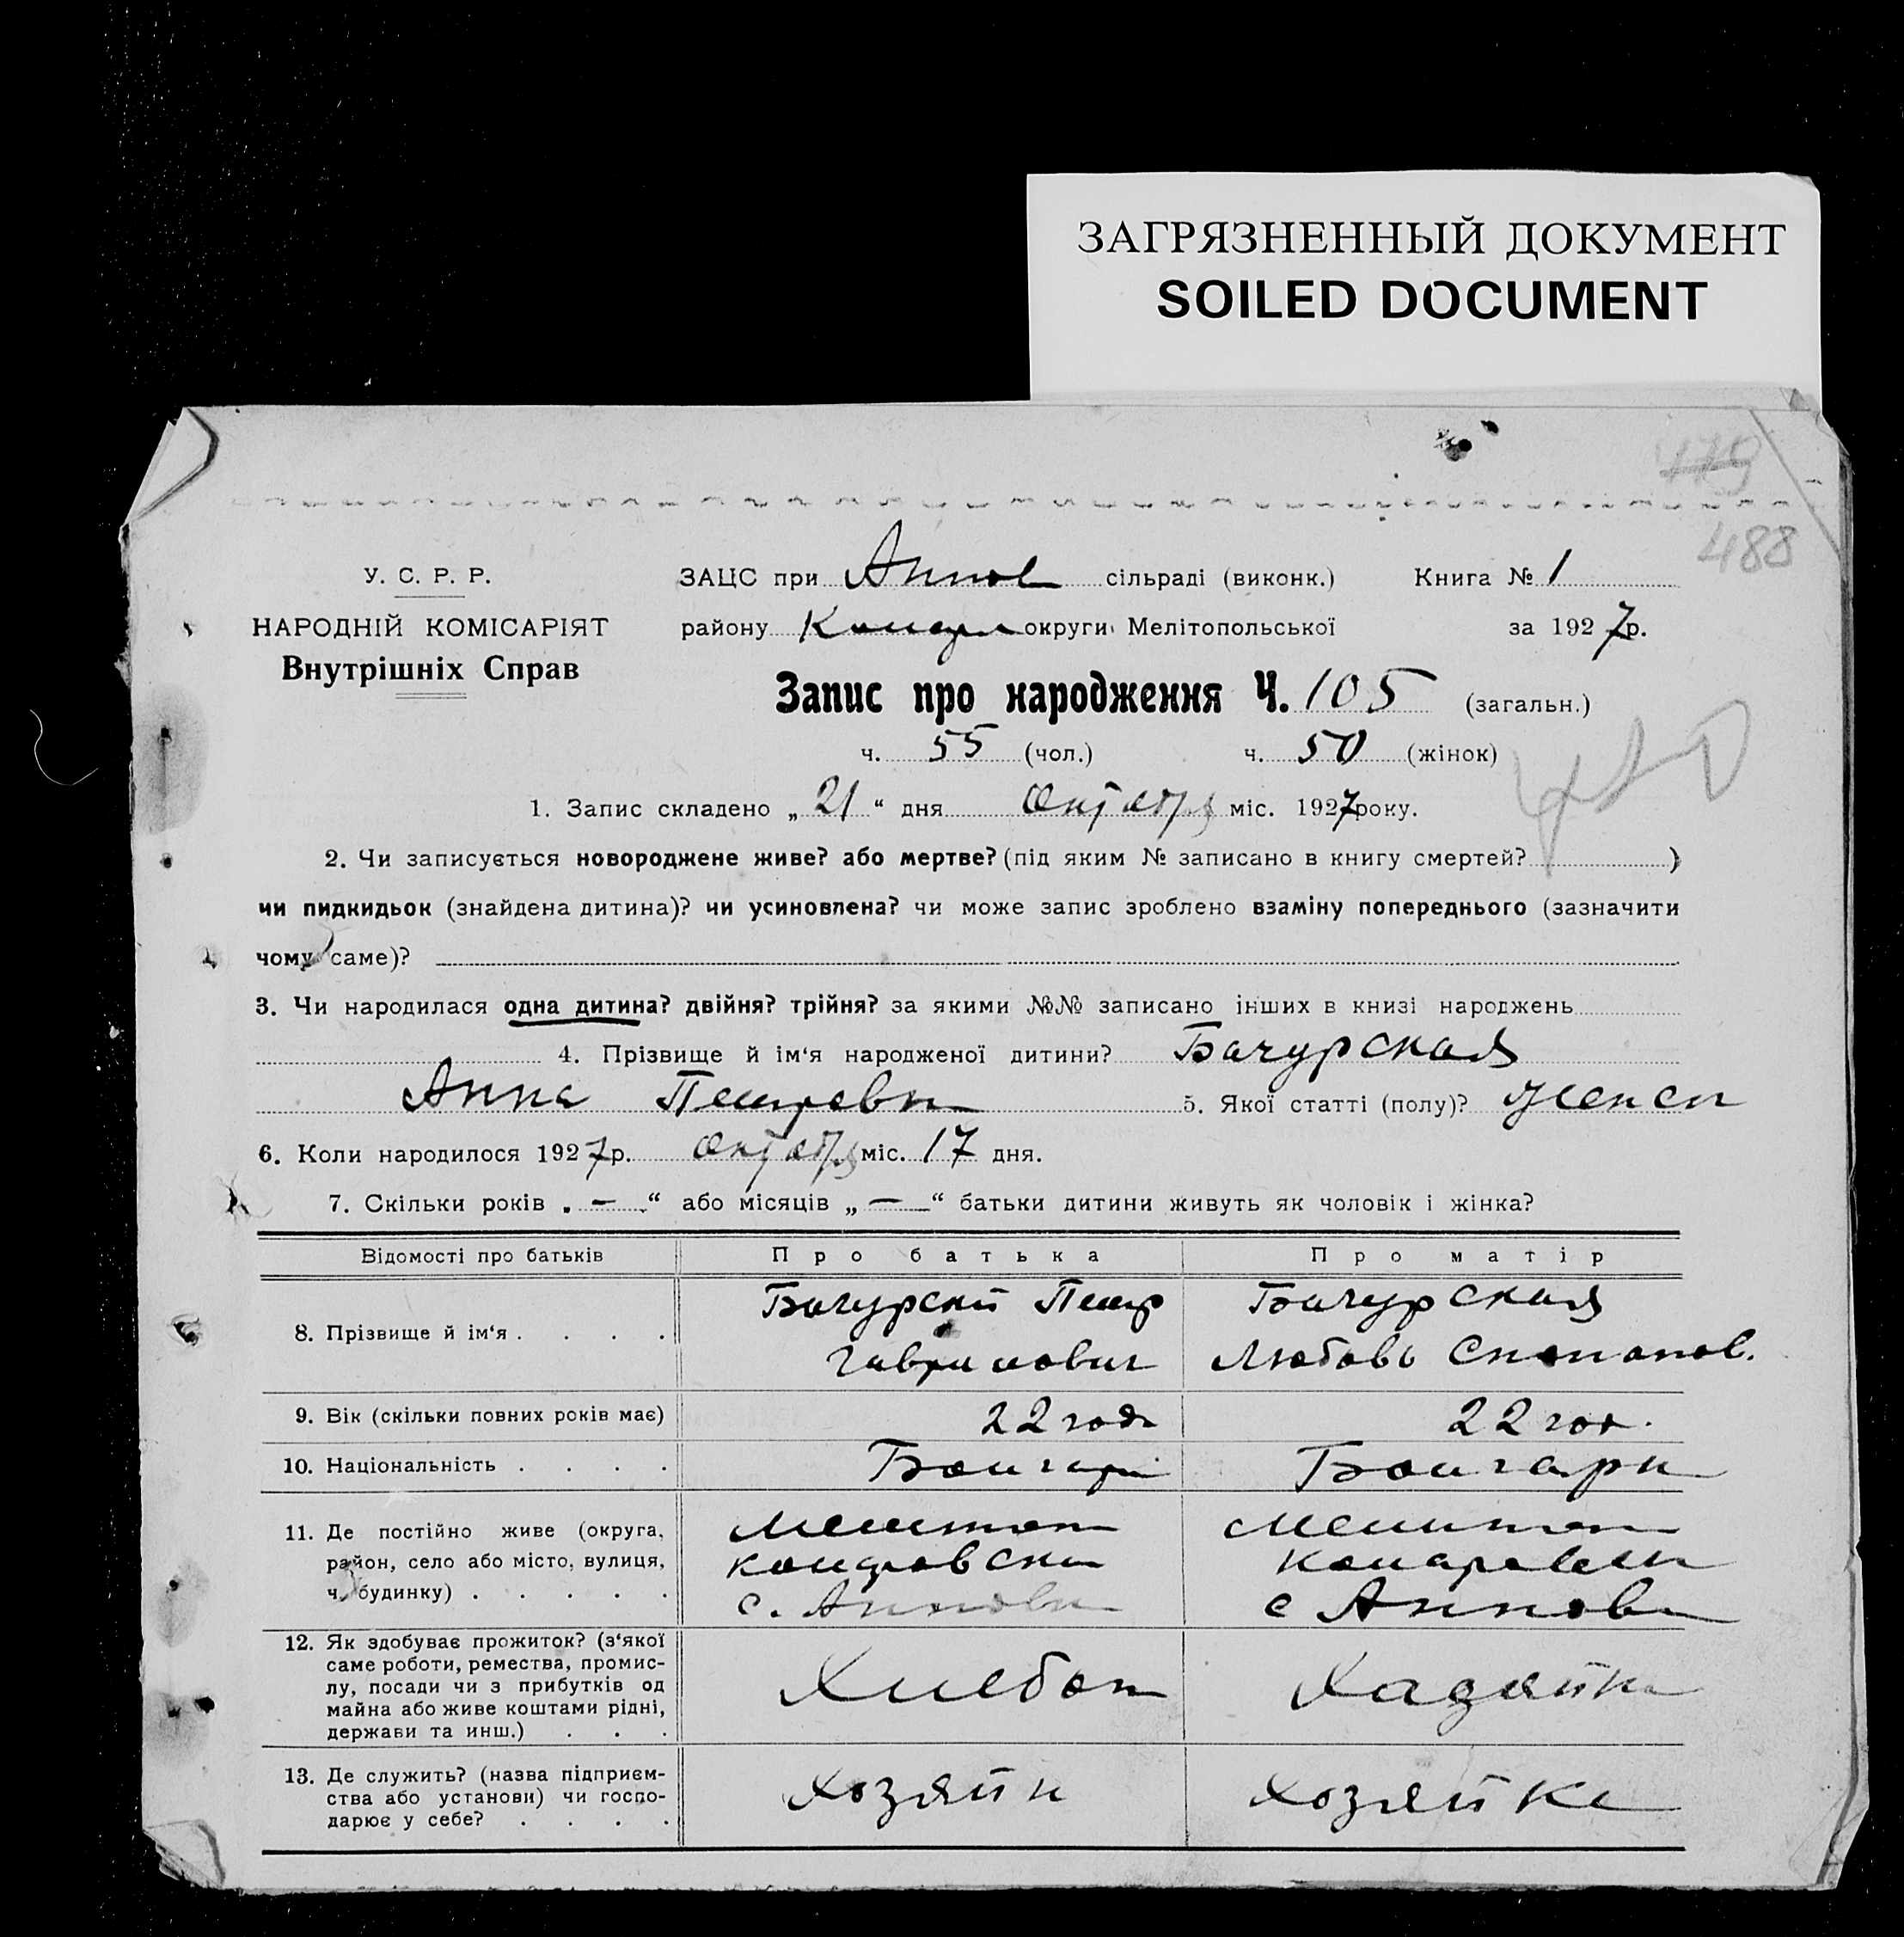 ЗАГРЯЗНЕННЫЙ ДОКУМЕНТ
SOILED DOCUMENT
488
У. С. Р. Р.
НАРОДНІЙ КОМІСАРІЯТ
Внутрішніх Справ
ЗАЦС при Аннов сільраді (виконк.) Книга № 1
району округи Мелітопольської за 1927 р.
Запис про народження Ч. 105 (загальн.)
ч. 55 (чол.) ч. 50 (жінок)
1. Запис складено „21“ дня октября міс. 1927 року.
2. Чи записується новороджене живе? або мертве? (під яким № записано в книгу смертей? )
чи пидкидьок (знайдена дитина)? чи усиновлена? чи може запис зроблено взаміну попереднього (зазначити
чому саме)?
3. Чи народилася одна дитина? двійня? трійня? за якими №№ записано інших в книзі народжень
4. Прізвище й ім‘я народженої дитини? Бачурская
Анна Петровн 5. Якої статті (полу)? женск
6. Коли народилося 1927 р. октября міс. 17 дня.
7. Скільки років „ — “ або місяців „ — “ батьки дитини живуть як чоловік і жінка?
Відомості про батьків Про батька Про матір
8. Прізвище й ім‘я . . . . Бачурский Петр Бачурская
Гаврилович Любовь Степанов.
9. Вік (скільки повних років має) 22 года 22 год.
10. Національність . . . . Болгар Болгарк
11. Де постійно живе (округа, Мелитоп Мелитоп
район, село або місто, вулиця,
ч. будинку) . . . . . с. Анновк с Анновк
12. Як здобуває прожиток? (з‘якої
саме роботи, ремества, промис-
лу, посади чи з прибутків од Хлебоп Хазяйк
майна або живе коштами рідні,
держави та инш.) . . .
13. Де служить? (назва підприєм-
ства або установи) чи госпо- Хозяйн Хозяйка
дарює у себе? . . . .